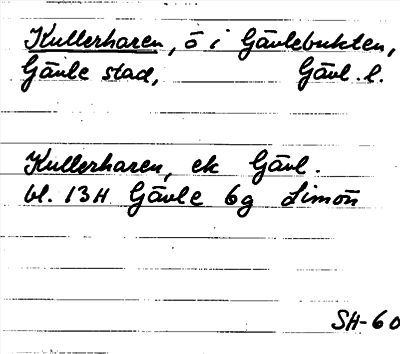 Kullerharen, ö i Gävlebukten,
Gävle stad, Gävl. l.
Kullerharen, ek Gävl.
bl. 13H Gävle 6g Limön
SH-60